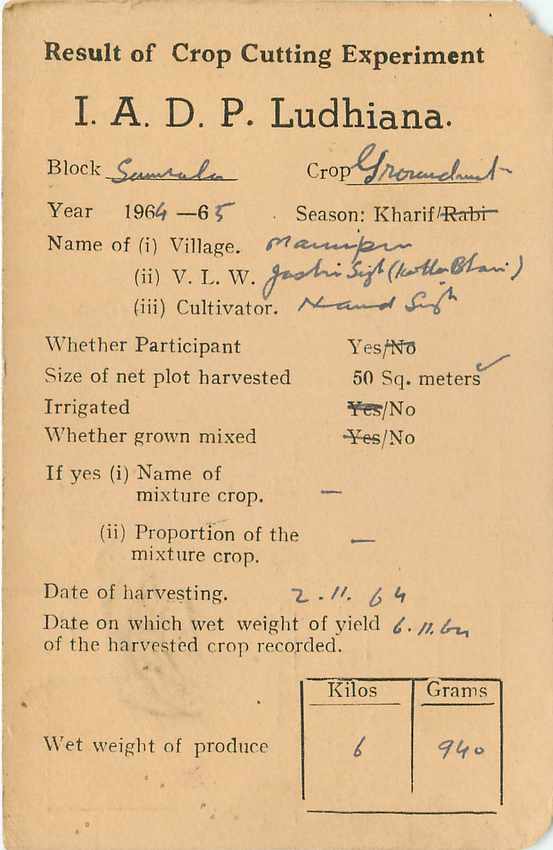 Result of Crop Cutting Experiment
I. A. D. P. Ludhiana.
Block Samrala Crop Groundnut
Year 1964—65 Season: Kharif/Rabi
Name of (i) Village. Manupur
(ii) V. L. W. Singh (Kotla Bhari)
(iii) Cultivator. Nand Singh
Whether Participant Yes/No
Size of net plot harvested 50 Sq. meters
Irrigated Yes/No
Whether grown mixed Yes/No
If yes (i) Name of
mixture crop. —
(ii) Proportion of the
mixture crop. —
Date of harvesting. 2.11.64
Date on which wet weight of yield 6.11.64
of the harvested crop recorded.
Kilos Grams
Wet weight of produce 6 940